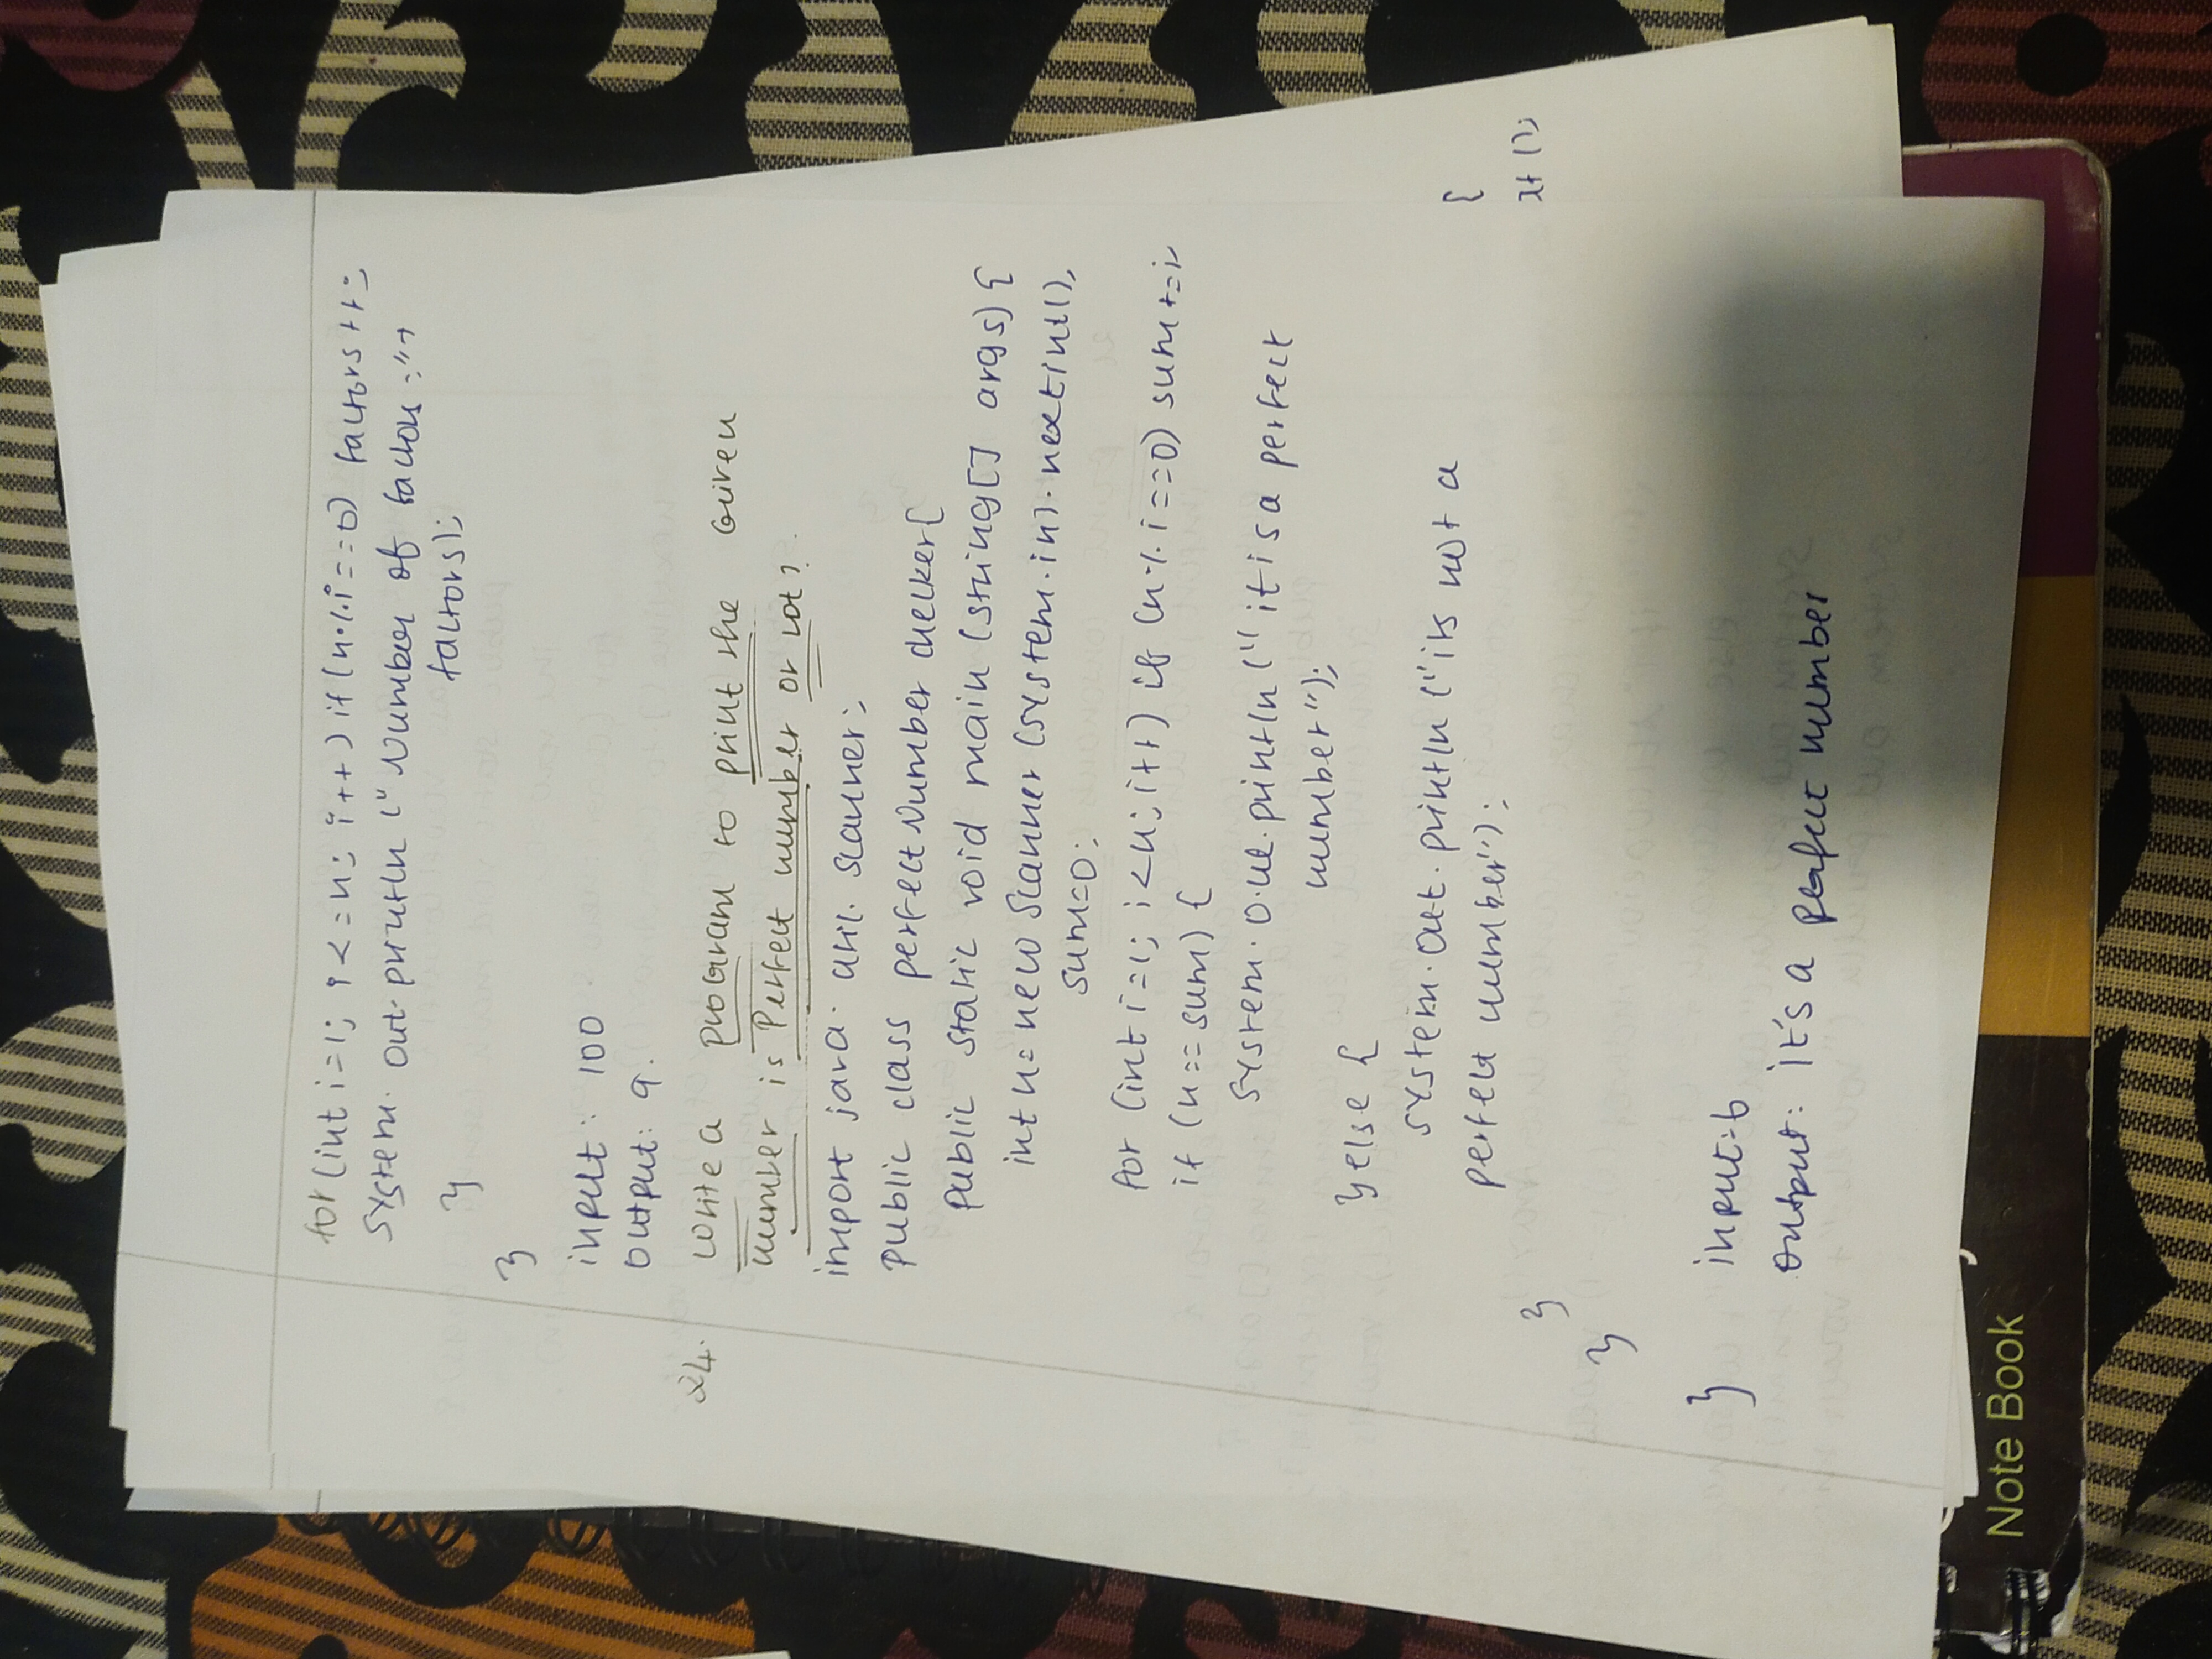 for (int i=1; i<=n; i++) if (n%i==0) factors++;
System.out.println ("Number of factors :"+
factors);
}
}
input: 100
output: 9.
24. Write a program to print the Given
number is Perfect number or not?
import java.util.scanner;
public class perfectNumber checker{
public static void main (string[] args) {
int n= new Scanner (system.in).nextint(),
sum=0;
for (int i=1; i<n; i++) if (n%i==0) sum+=i
if (n==sum) {
system.out.println ("it is a perfect
number");
}else {
system.out.println ("its not a
perfect number");
{
xt ();
}
}
} input:6
output: it's a perfect number
Note Book